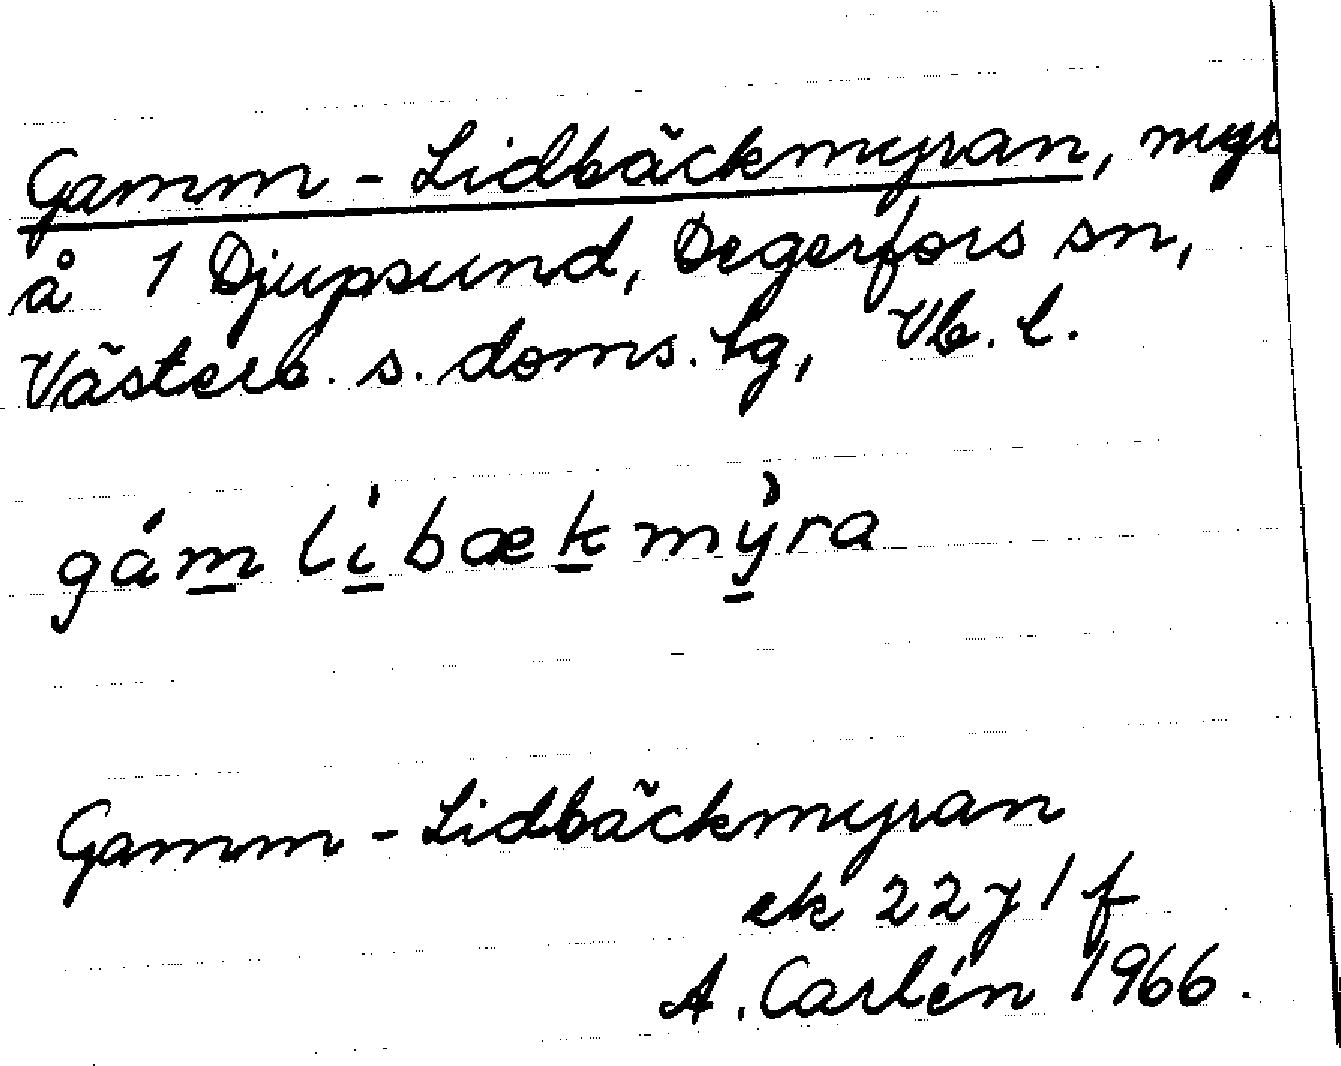 Gamm-Lidbäckmyran, myr
å 1 Djupsund, Degerfors sn,
Västerb. s. doms. lg, Vb. l.
gám lìbækmỳra
Gamm-Lidbäckmyran
ek 22 J 1 f
A. Carlén 1966.